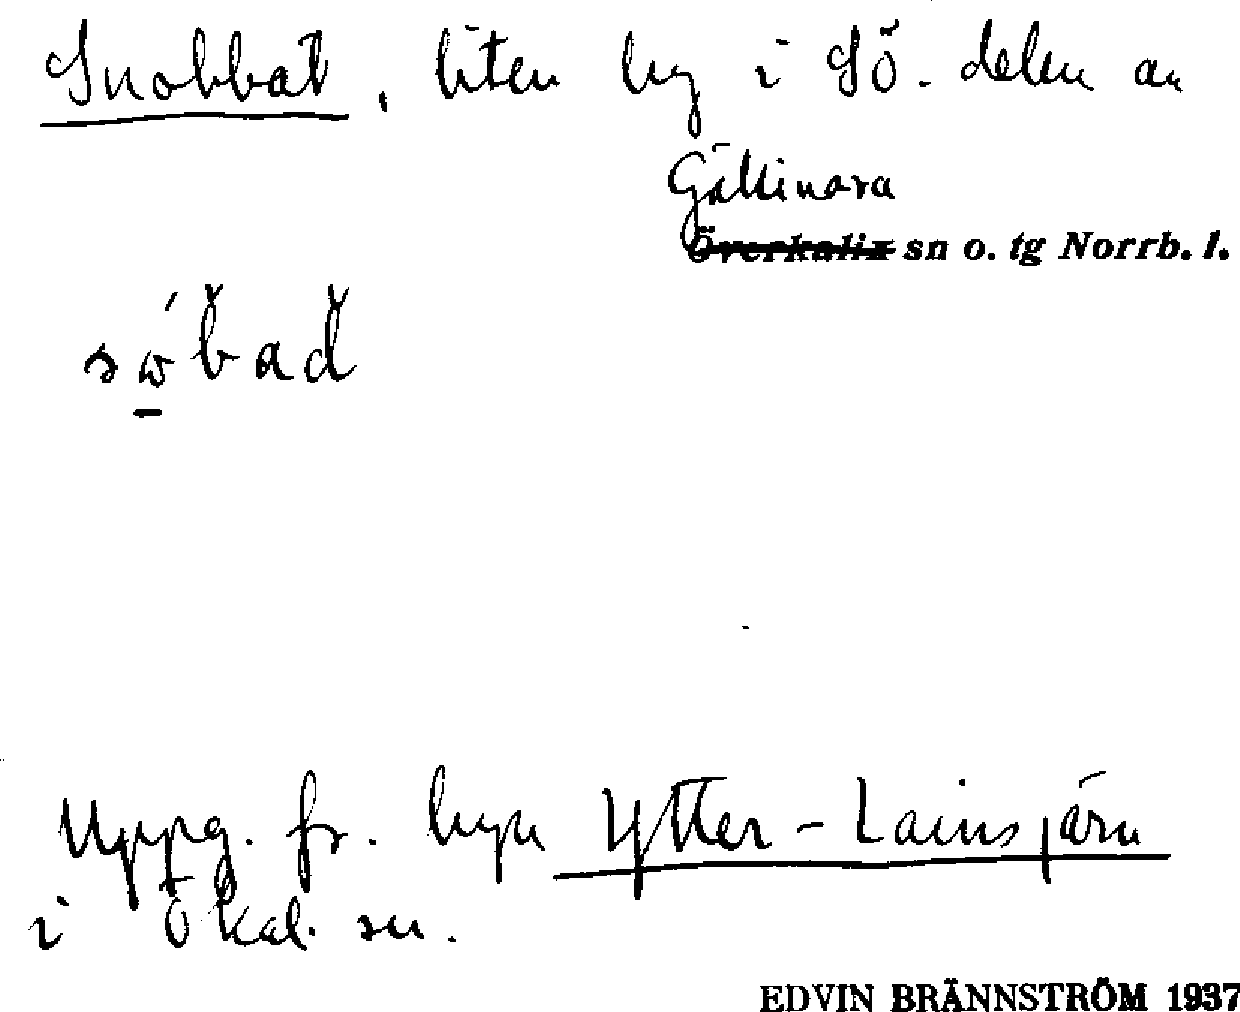 Snobbat, liten by i Sö. delen av
Gällivara
Överkalix sn o. tg Norrb. l.
Uppg. fr. byn Ytter-Lainsjärv
i Ökal. sn.
EDVIN BRÄNNSTRÖM 1937